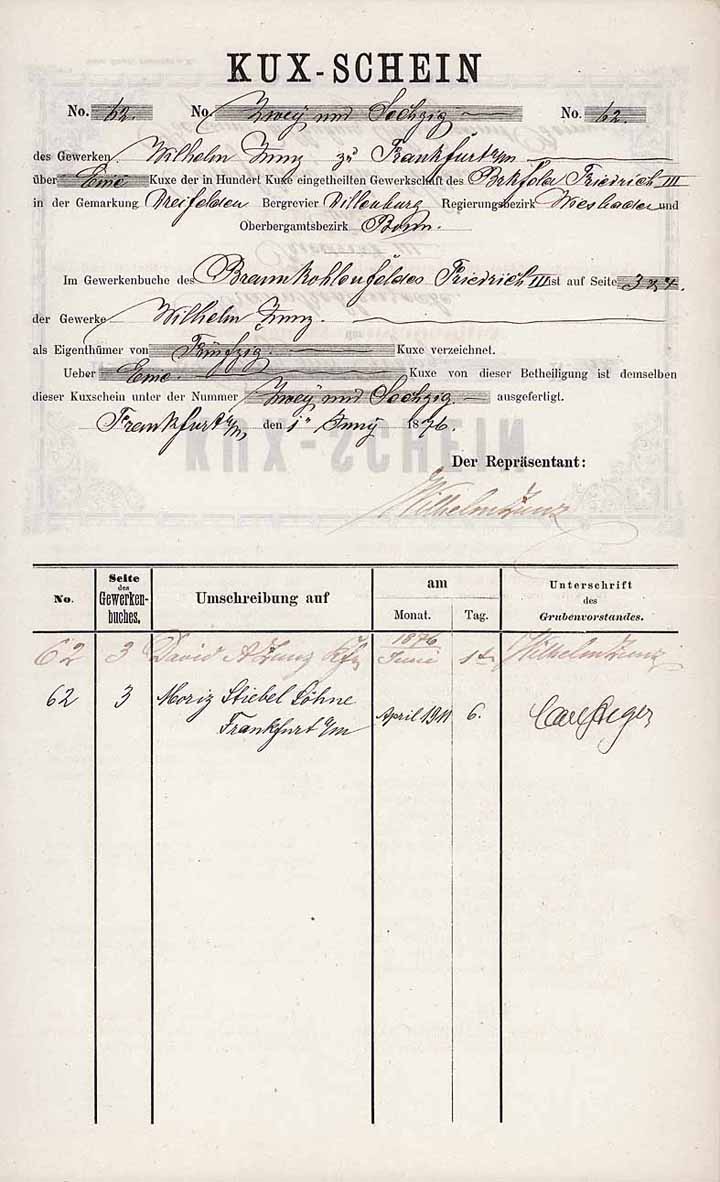 KUX-SCHEIN
No. 62. No. Zwey und Sechzig No. 62.
des Gewerken Wilhelm Zunz zu Frankfurt a/m
über Eine Kuxe der in Hundert Kuxe eingetheilten Gewerkschaft des Brkfeldes Friedrich III
in der Gemarkung Dreifelden Bergrevier Dillenburg Regierungsbezirk Wiesbaden und
Oberbergamtsbezirk Bonn.
Im Gewerkenbuche des Braunkohlenfeldes Friedrich III ist auf Seite 3
der Gewerke Wilhelm Zunz.
als Eigenthümer von Fünfzig Kuxe verzeichnet.
Ueber Eine Kuxe von dieser Betheiligung ist demselben
dieser Kuxschein unter der Nummer Zwey und Sechzig ausgefertigt.
Frankfurt a/m, den 1n Juny 1876.
Der Repräsentant:
Wilhelm Zunz
No. Seite des Gewerken-buches. Umschreibung auf am Monat. Tag. Unterschrift des Grubenvorstandes.
62 3 David A Zunz 1876 Juni 1 Wilhelm Zunz
62 3 Moriz Stiebel Söhne
Frankfurt a/m April 1911 6.